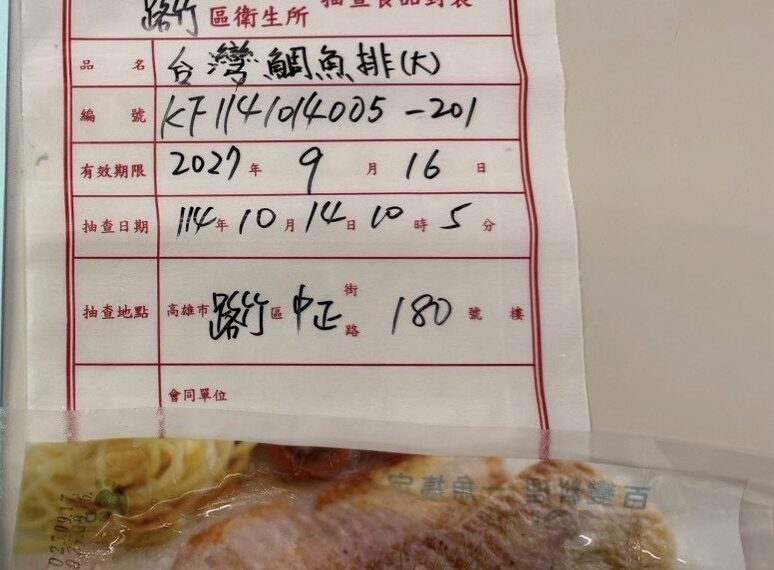 路竹 區衛生所 抽查食品封袋
品名 台灣鯛魚排(大)
編號 KF1141014005-201
有效期限 2027年 9月 16日
抽查日期 114年10月14日10時5分
抽查地點 高雄市路竹區中正街路 180號 樓
會同單位